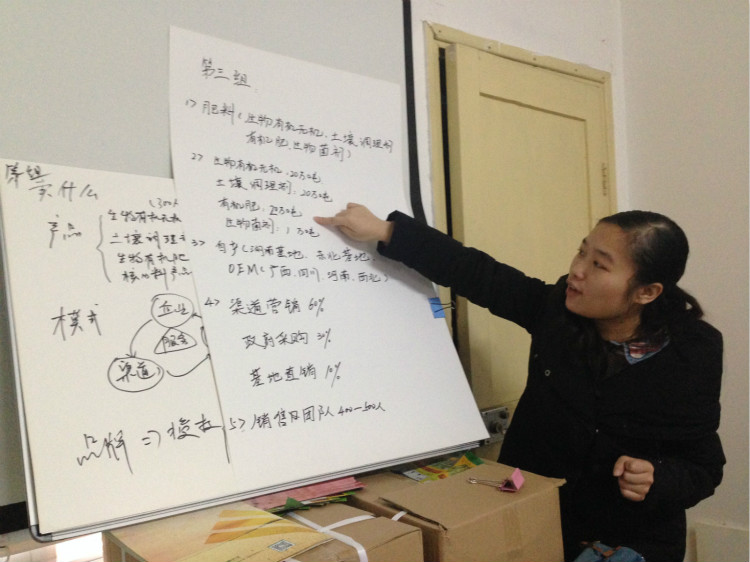 第三组
1> 肥料（生物有机无机、土壤调理剂
有机肥、生物菌剂）
2> 生物有机无机：20万吨
土壤调理剂：20万吨
有机肥：20万吨
生物菌剂：1万吨
3> 自产（河南基地、东北基地、
OEM（广西、四川、河南、西北）
4> 渠道营销 60%
政府采购 30%
基地直销 10%
5> 销售及团队 400-500人
卖什么
产品
生物有机
土壤调理
生物有机肥
产品
模式
企业
服务
渠道
品牌 =>